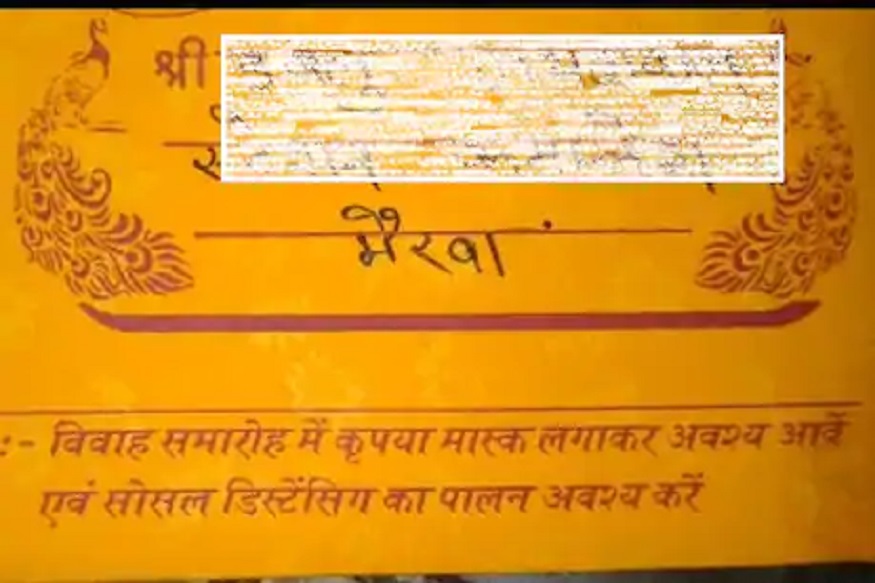 श्री
भैरवा
:- विवाह समारोह में कृपया मास्क लगाकर अवश्य आवें
एवं सोसल डिस्टेंसिग का पालन अवश्य करें